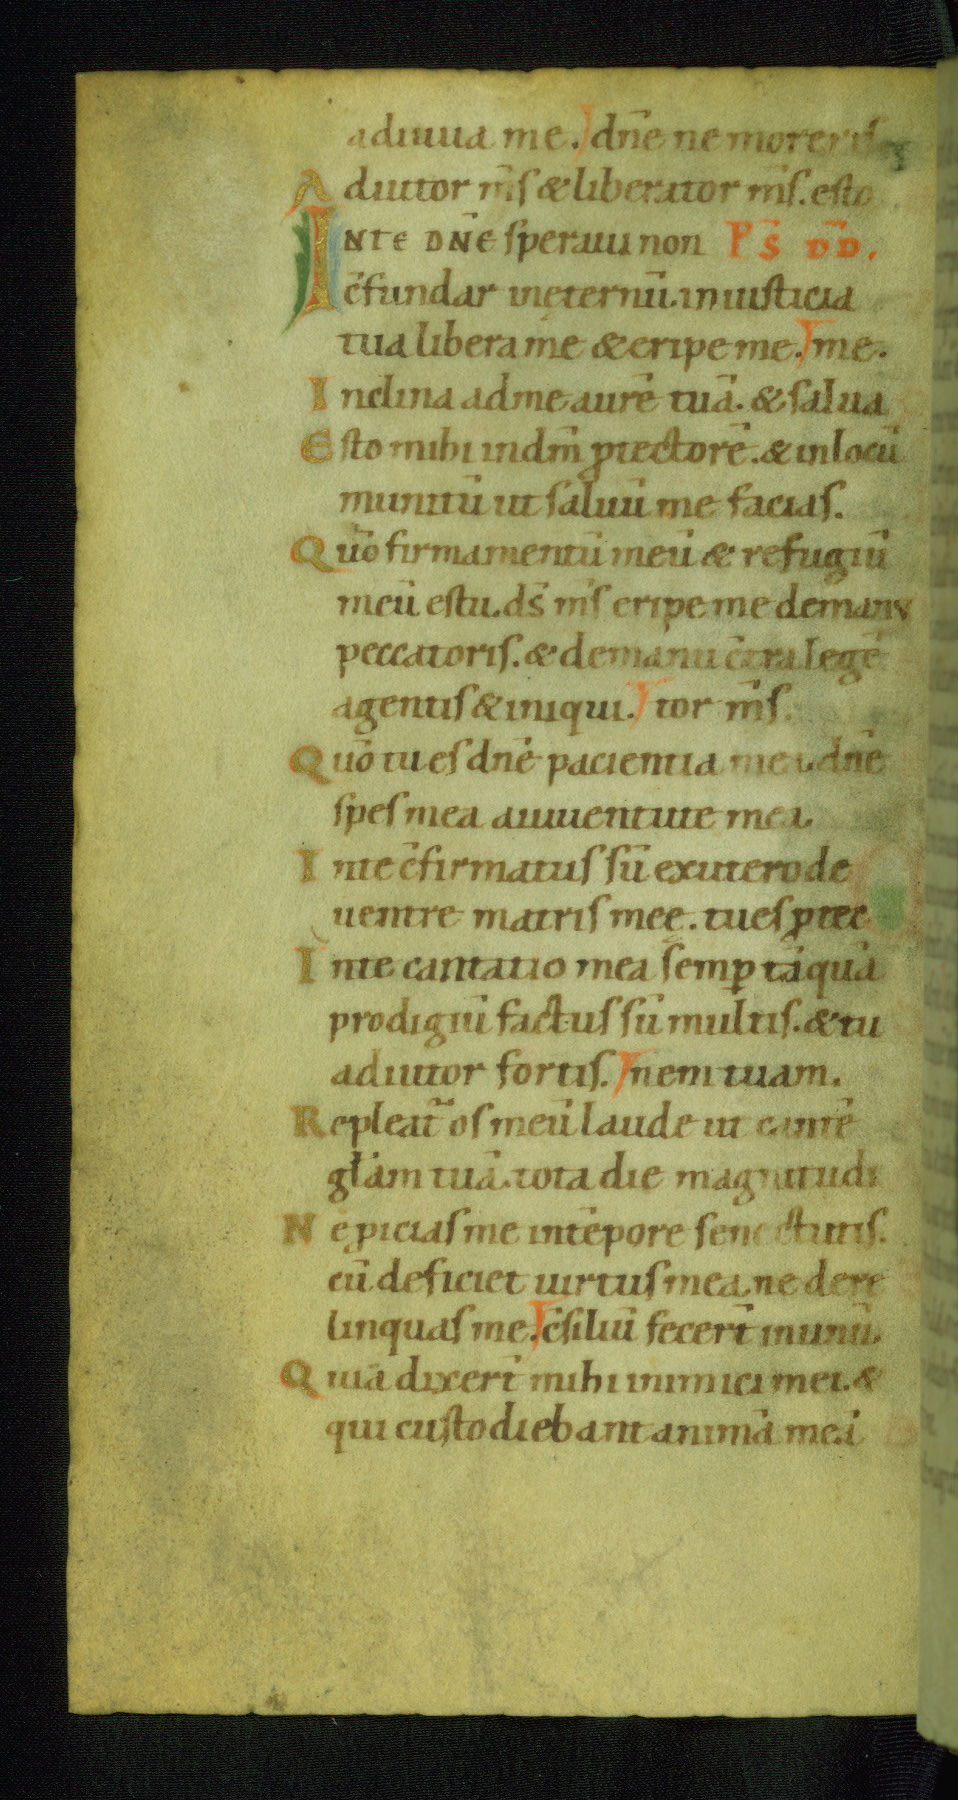 adiuua me. dn̄e ne moreris
Adiutor m̄s & liberator m̄s. esto
INTE DN̄E speraui non PS̄ DD̄.
c̄fundar ineternū. iniusticia
tua libera me & eripe me. me.
Inclina ad me aurē tuā. & salua
Esto mihi in dm̄ ꝓtectorē. & in locū
munitū ut saluū me facias.
Quō firmamentū meū & refugiū
meū es tu. ds̄ m̄s eripe me de manu
peccatoris. & de manu c̄tra legē
agentis & iniqui. tor m̄s.
Quō tu es dn̄e pacientia mea. dn̄e
spes mea a iuuentute mea.
In te c̄firmatus sū ex utero de
uentre matris meę. tu es ꝓtec
In te cantatio mea semꝑ tāquā
prodigiū factus sū multis. & tu
adiutor fortis. nem tuam.
Repleat᷑ os meū laude ut cantē
głam tuā. tota die magnitudi
Ne ꝓicias me in tēpore senectutis.
cū defic&iet uirtus mea. ne dere
linquas me. c̄siliū fecerт̄ in unū.
Quiā dixerт̄ mihi inimici mei. &
qui custodiebant animā meā